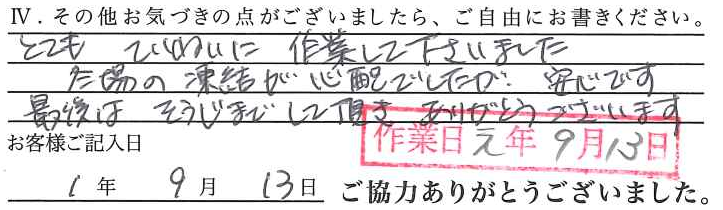 Ⅳ．その他お気づきの点がございましたら、ご自由にお書きください。
とても ていねいに 作業して下さいました
冬場の 凍結が 心配でしたが 安心です
最後は そうじまでして頂き ありがとうございます
お客様ご記入日
作業日元年9月13日
1年 9月 13日 ご協力ありがとうございました。